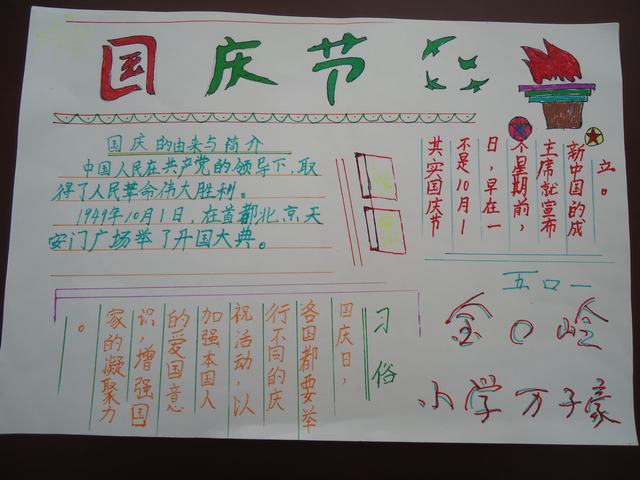 国庆节
国庆的由来与简介
中国人民在共产党的领导下,取
得了人民革命伟大胜利。
1949年10月1日,在首都北京天
安门广场举了开国大典。
其实国庆节
不是10月1
日,早在一
个星期前,
主席就宣布
新中国的成
立。
习俗
国庆日,
各国都要举
行不同的庆
祝活动,以
加强本国人
的爱国意
识,增强国
家的凝聚力
。
五口一
金口岭
小学万子豪